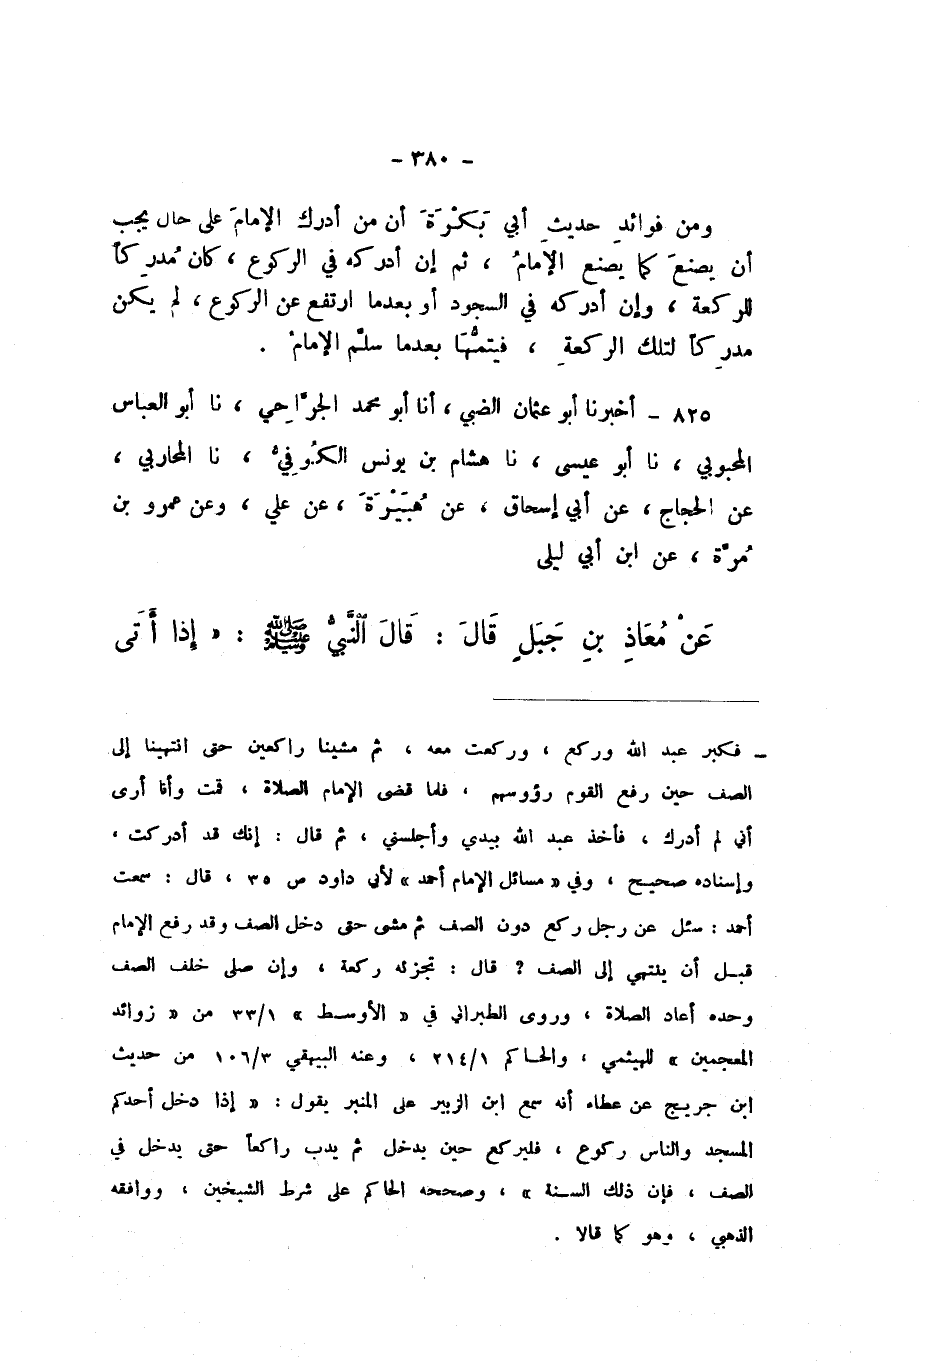 - ٣٨٠ -
ومن فوائدِ حديثِ أبي بَكْرَةَ أن من أدرك الإمامَ على حال يجب
أن يصنعَ كما يصنع الإمامُ ، ثم إن أدركه في الركوع ، كان مُدرِكاً
للركعة ، وإن أدركه في السجود أو بعدما ارتفع عن الركوع ، لم يكن
مدرِكاً لتلك الركعةِ ، فيتمُّها بعدما سلَّم الإمامُ .
٨٢٥ - أخبرنا أبو عثمان الضبي ، أنا أبو محمد الجرَّاحِي ، نا أبو العباس
المحبوبي ، نا أبو عيسى ، نا هشام بن يونس الكُوفيُّ ، نا المحاربي ،
عن الحجاج ، عن أبي إسحاق ، عن هُبَيْرَةَ ، عن علي ، وعن عمرو بن
مُرَّة ، عن ابن أبي ليلى
عَنْ مُعَاذِ بنِ جَبَلٍ قَالَ : قَالَ النَّبِيُّ ﷺ : « إذا أَتَى
ـ فكبر عبد الله وركع ، وركعت معه ، ثم مشينا راكعين حتى انتهينا إلى
الصف حين رفع القوم رؤوسهم ، فلما قضى الإمام الصلاة ، قمت وأنا أرى
أني لم أدرك ، فأخذ عبد الله بيدي وأجلسني ، ثم قال : إنك قد أدركت ،
وإسناده صحيح ، وفي « مسائل الإمام أحمد » لأبي داود ص ٣٥ ، قال : سمعت
أحمد : سئل عن رجل ركع دون الصف ثم مشى حتى دخل الصف وقد رفع الإمام
قبل أن ينتهي إلى الصف ? قال : تجزئه ركعة ، وإن صلى خلف الصف
وحده أعاد الصلاة ، وروى الطبراني في « الأوسط » ٣٣/١ من « زوائد
المعجمين » للهيثمي ، والحاكم ٢١٤/١ ، وعنه البيهقي ١٠٦/٣ من حديث
ابن جريج عن عطاء أنه سمع ابن الزبير على المنبر يقول : « إذا دخل أحدكم
المسجد والناس ركوع ، فليركع حين يدخل ثم يدب راكعاً حتى يدخل في
الصف ، فإن ذلك السنة » ، وصححه الحاكم على شرط الشيخين ، ووافقه
الذهبي ، وهو كما قالا .